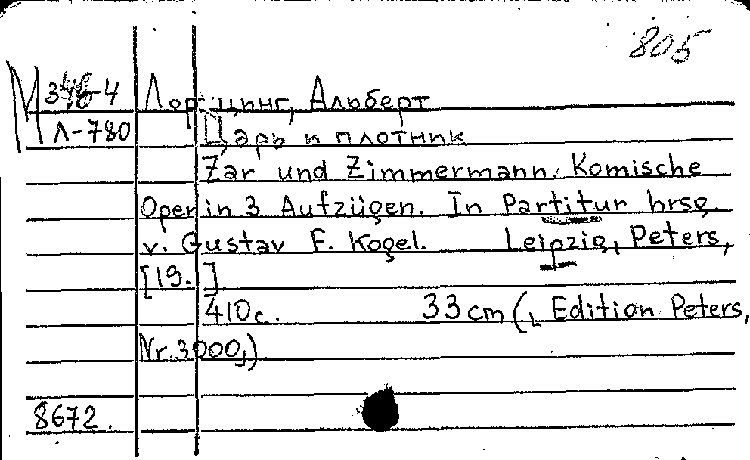 805
М 34б-4 Лорцинг, Альберт
Л-780 Царь и плотник
Zar und Zimmermann. Komische
Oper in 3 Aufzügen. In Partitur hrsg.
v. Gustav F. Kogel. Leipzig, Peters,
[19. ]
410с. 33 cm („Edition Peters,
Nr. 3000„)
8672.